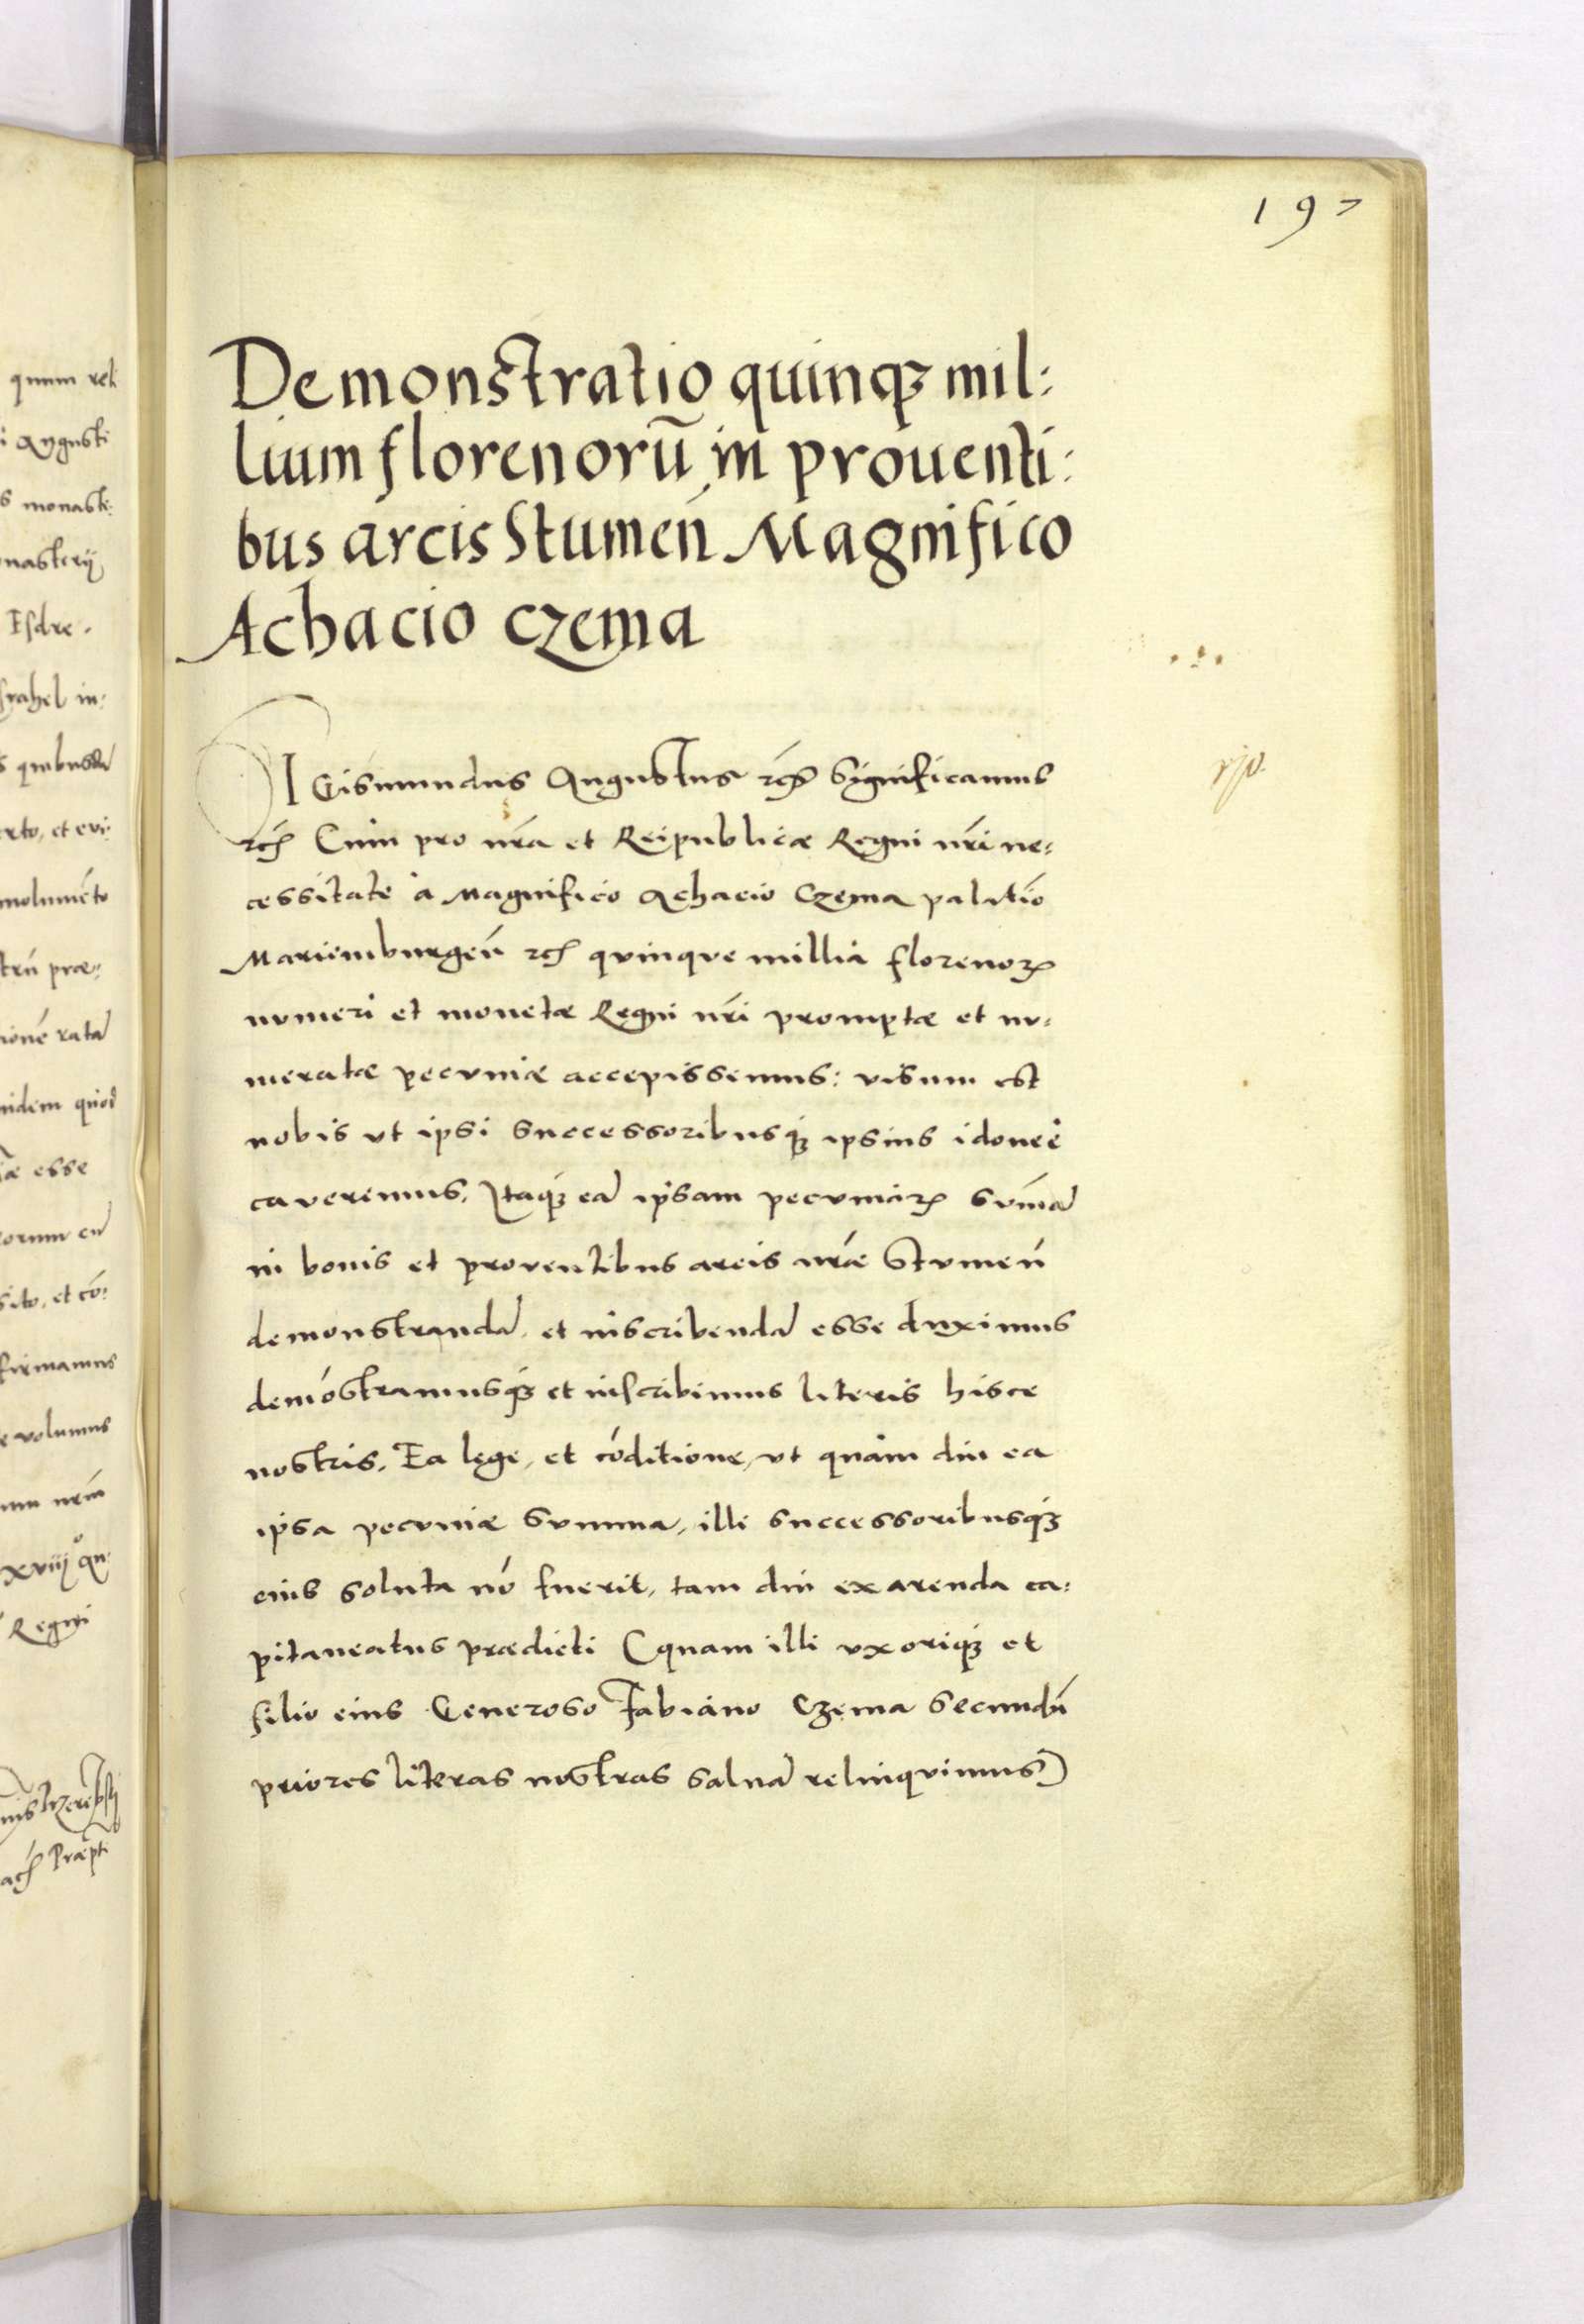 197
Demonstratio quinqꝫ mil:
lium florenorũ in prouenti:
bus arcis Stumeñ Magnifico
Achacio Czema
IGismundus Augustus rcꝭ Significamus
rcꝭ Cum pro nr̃a et Reipublicæ Regni nr̃i ne:
cessitate à Magnifico Achacio Czema palatĩo
Mariemburgeñ rcꝭ quinque millia florenoꝝ
numeri et monetæ Regni nr̃i promptæ et nu:
meratæ pecuniæ accepissemus: visum est
nobis vt ipsi successoribusqꝫ ipsius idoneè
caveremus. Itaqꝫ eã ipsam pecuniaꝝ sum̃ã
in bonis et proventibus arcis nr̃æ Stumeñ
demonstrandã et inscribendã esse duximus
demõstramusqꝫ et inscribimus literis hisce
nostris. Ea lege, et cõditione, vt quàm diu ea
ipsa pecuniæ summa, illi successoribusqꝫ
eius soluta nõ fuerit, tam diu ex arenda ca:
pitaneatus prædicti (quam illi vxoriqꝫ et
filio eius Generoso Fabiano Czema secundũ
priores literas nostras saluã relinquimus)
quum rel
i Augusti
s monasti:
nasterij
Esdre.
srahel in:
s quibusdã
erto, et evi:
molumẽto
trũ præ:
ionẽ ratã
nidem quod
iæ esse
orum cũ
sito, et cõ:
firmamus
e volumus
um nr̃m
xviij
Regni